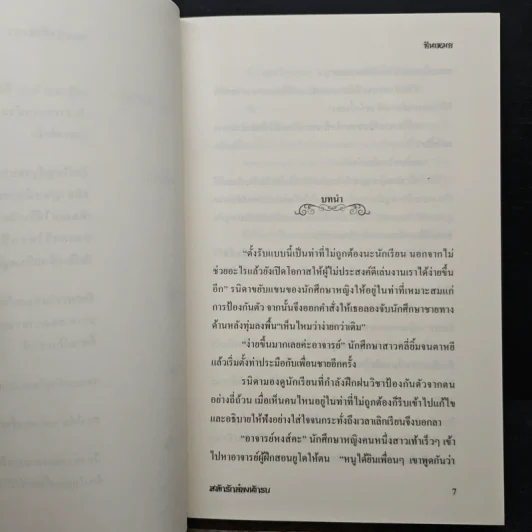 บทนำ
“ตั้งรับแบบนี้เป็นท่าที่ไม่ถูกต้องนะนักเรียน นอกจากไม่
ช่วยอะไรแล้วยังเปิดโอกาสให้ผู้ไม่ประสงค์ดีเล่นงานเราได้ง่ายขึ้น
อีก” รนิดาขยับแขนของนักศึกษาหญิงให้อยู่ในท่าที่เหมาะสมแก่
การป้องกันตัว จากนั้นจึงออกคำสั่งให้เธอลองจับนักศึกษาชายทาง
ด้านหลังทุ่มลงพื้น “เห็นไหมว่าง่ายกว่าเดิม”
“ง่ายขึ้นมากเลยค่ะอาจารย์” นักศึกษาสาวคลี่ยิ้มจนตาหยี
แล้วเริ่มตั้งท่าประมือกับเพื่อนชายอีกครั้ง
รนิดามองดูนักเรียนที่กำลังฝึกฝนวิชาป้องกันตัวจากตน
อย่างถี่ถ้วน เมื่อเห็นคนไหนอยู่ในท่าที่ไม่ถูกต้องก็รีบเข้าไปแก้ไข
และอธิบายให้ฟังอย่างใส่ใจจนกระทั่งถึงเวลาเลิกเรียนจึงบอกลา
“อาจารย์หงส์คะ” นักศึกษาหญิงคนหนึ่งสาวเท้าเร็วๆ เข้า
ไปหาอาจารย์ผู้ฝึกสอนยูโดให้ตน “หนูได้ยินเพื่อนๆ เขาพูดกันว่า
สลักรักล้อมหัวรบ 7